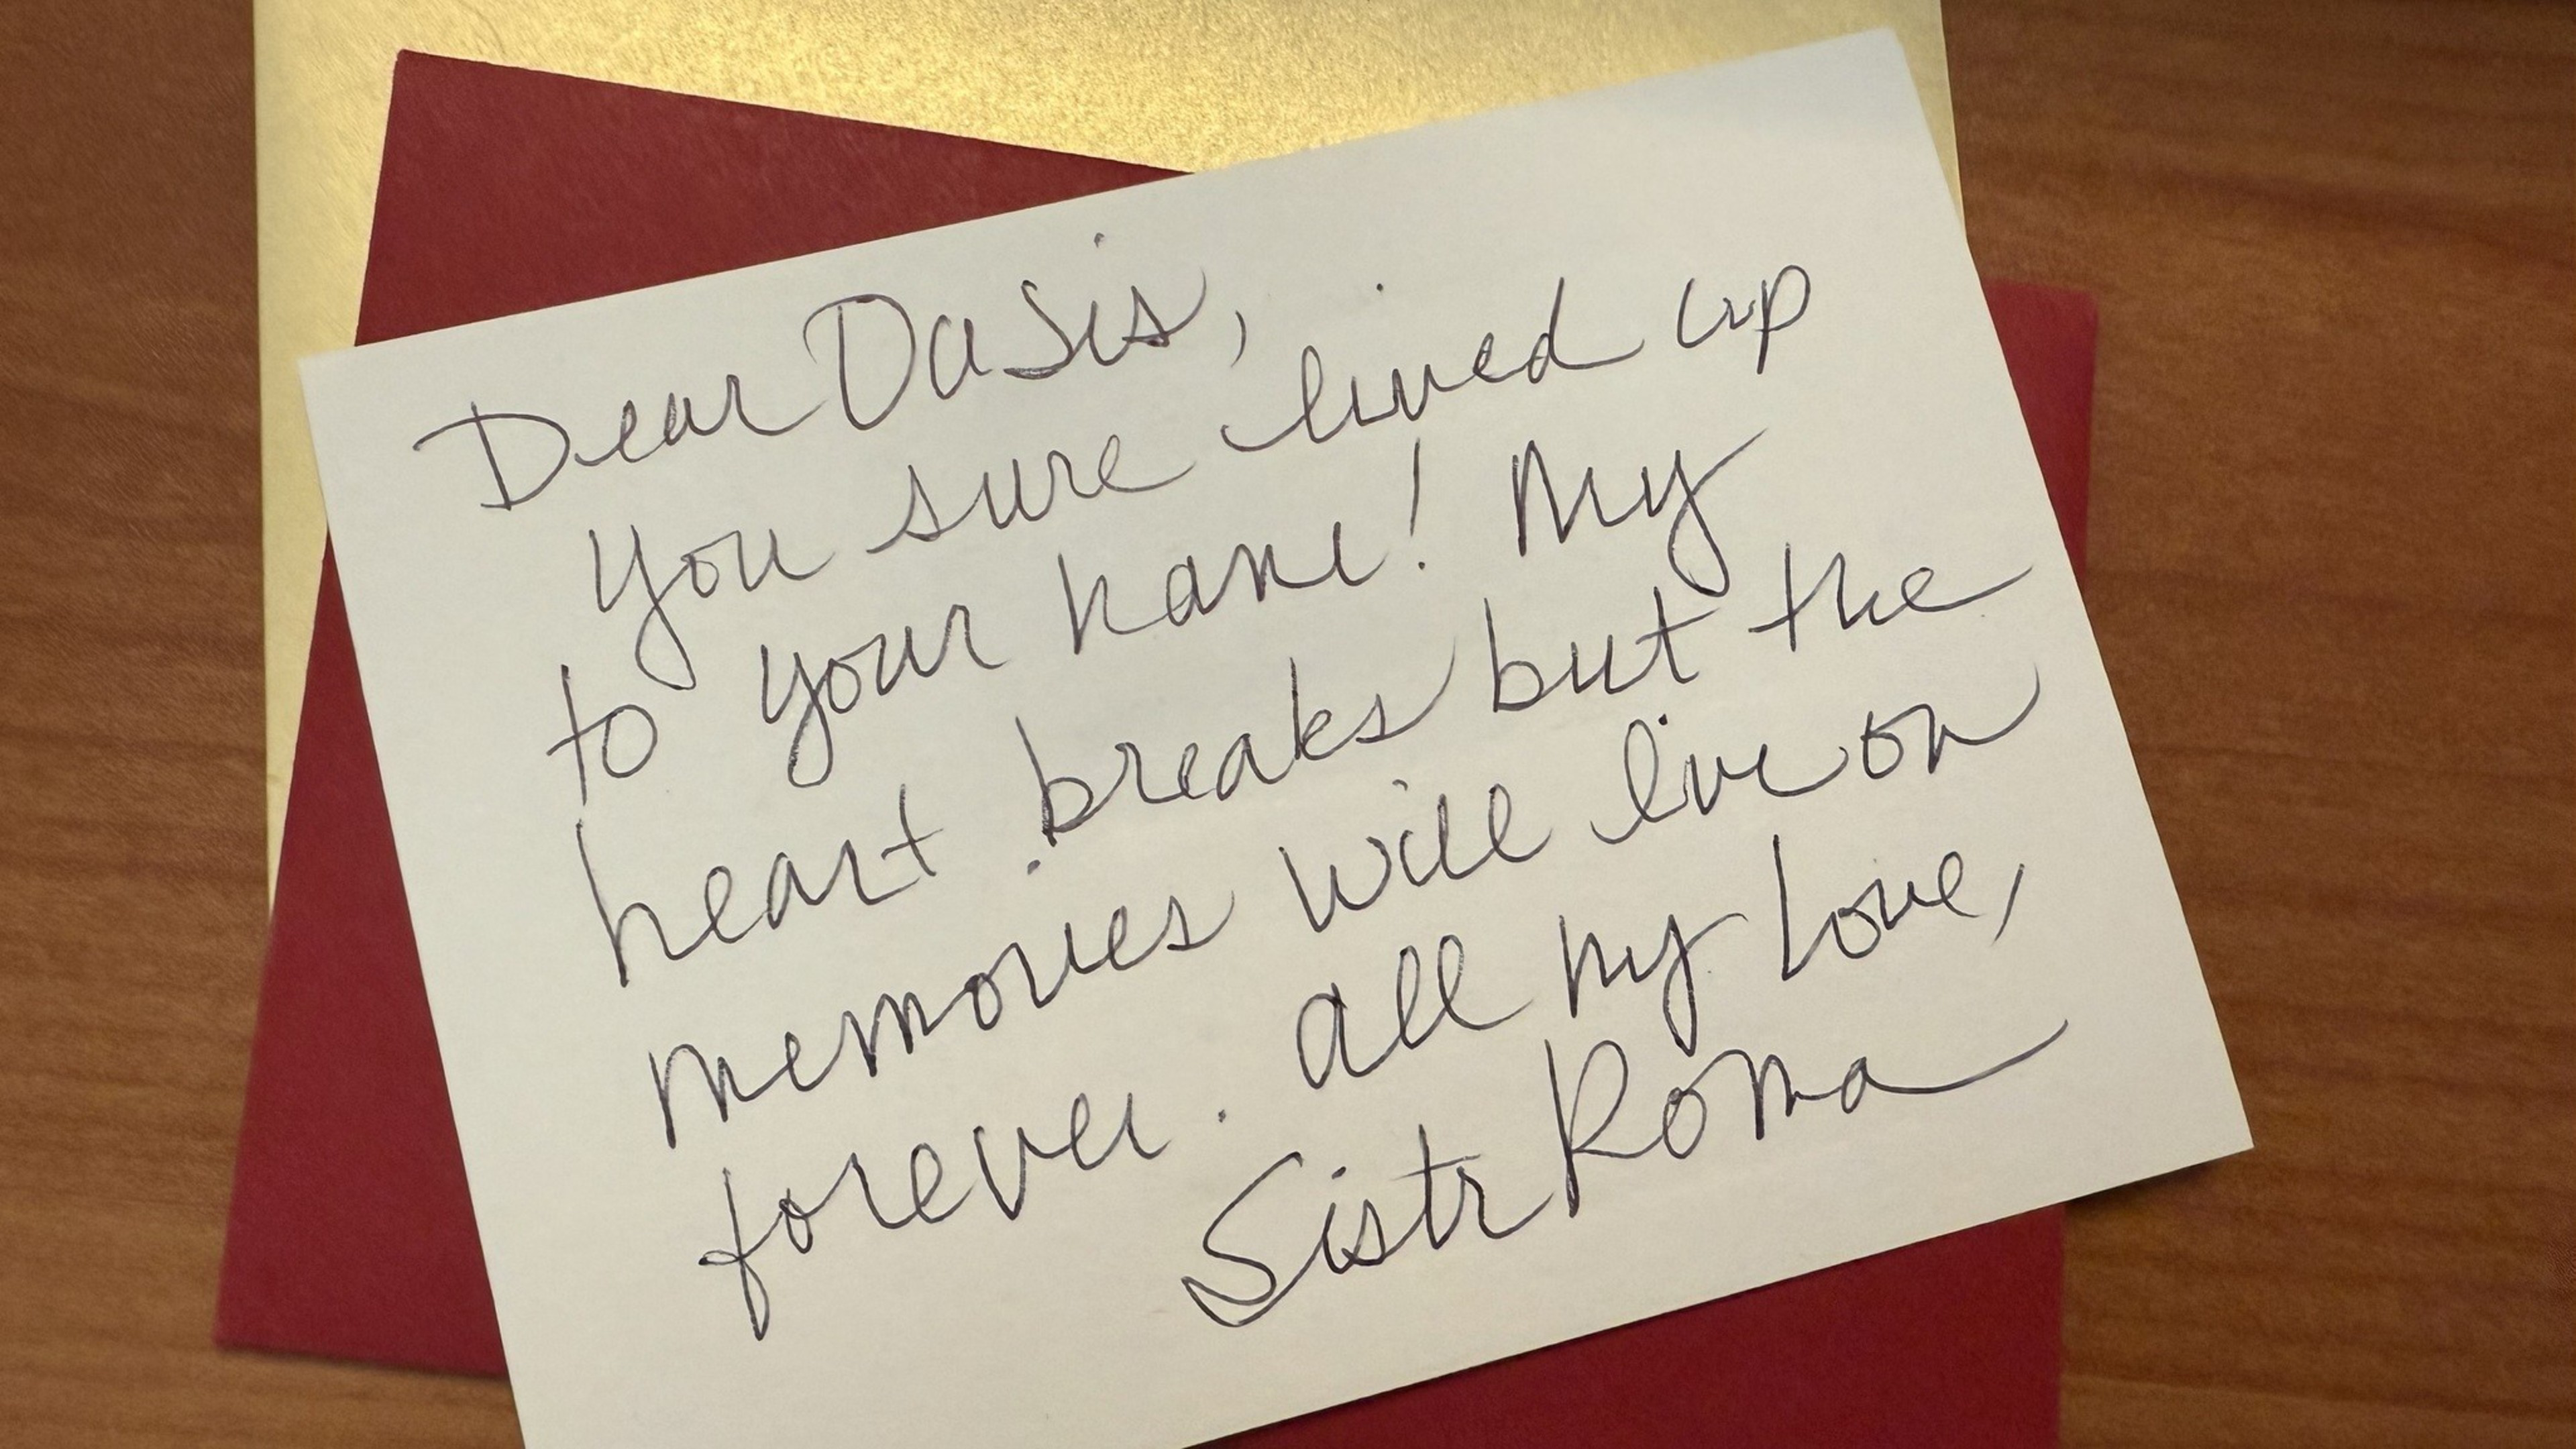 Dear Oasis,
you sure lived up
to your name! My
heart breaks but the
memories will live on
forever. all my love,
Sistr Roma